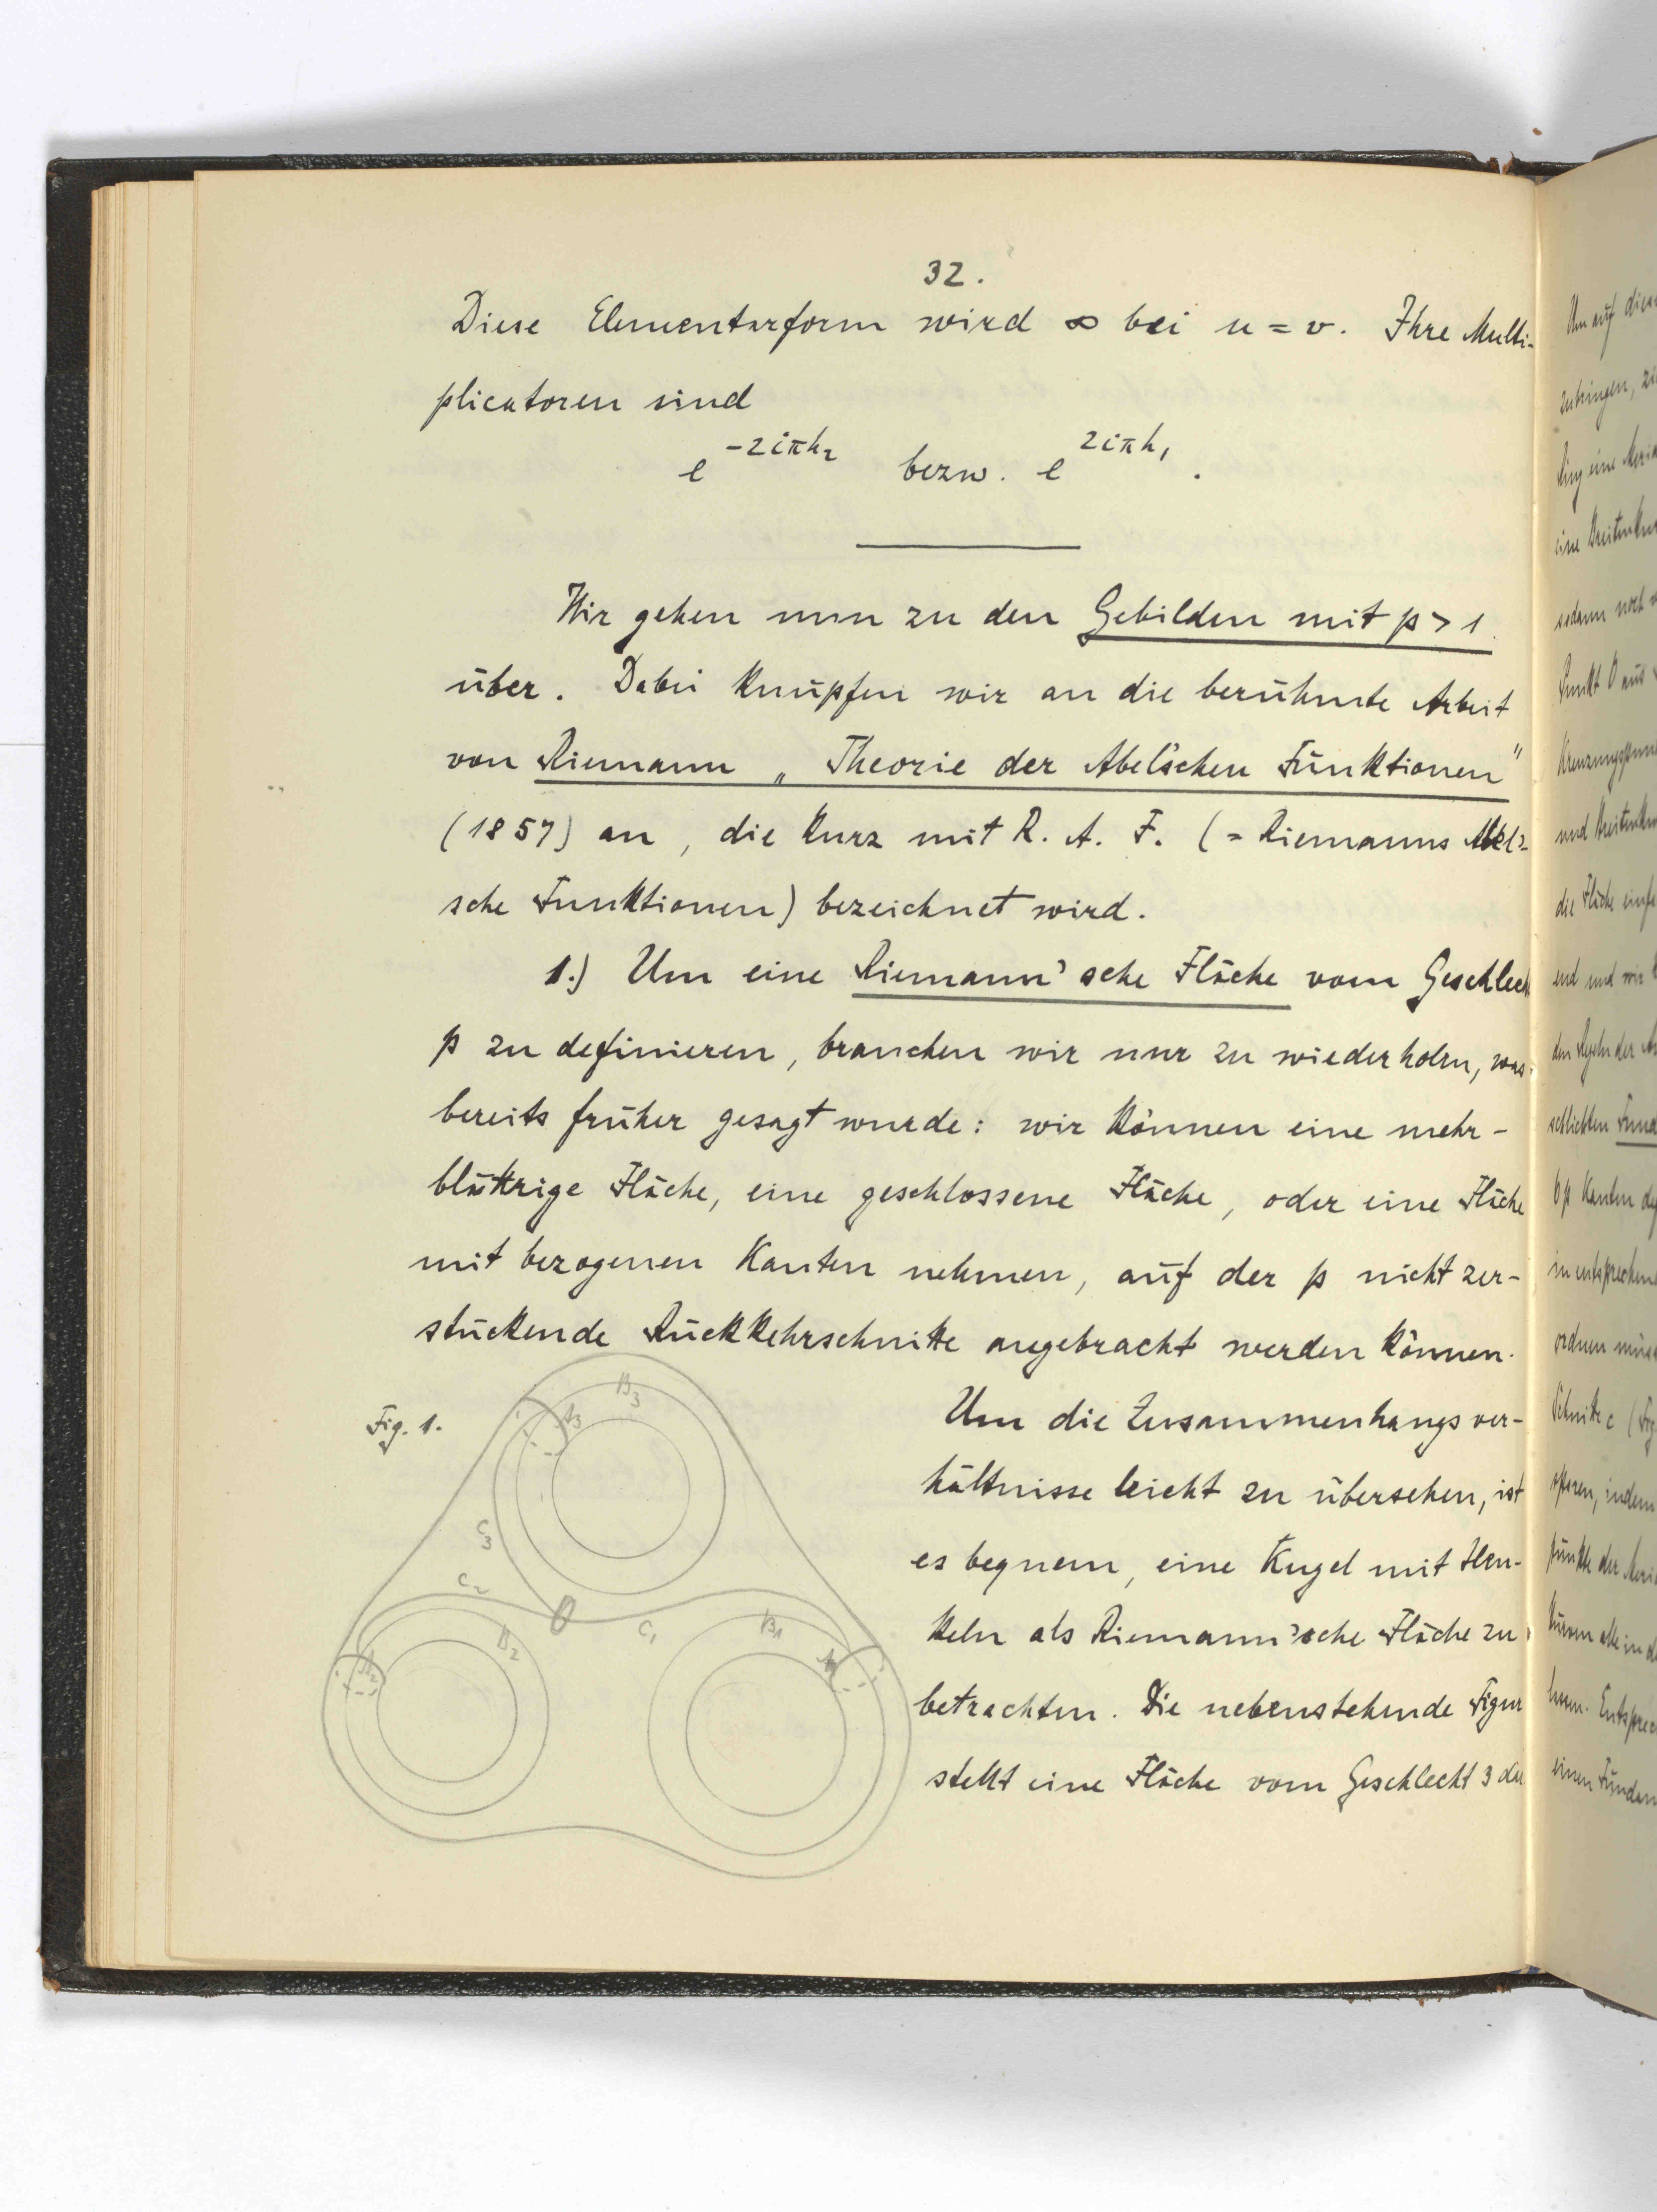 32.
Diese Elementarform wird ∞ bei u = v. Ihre Multi-
plicatoren sind
e^{-2iπh₂} bezw. e^{2iπh₁}.
Wir gehen nun zu den Gebilden mit p > 1
über. Dabei knüpfen wir an die berühmte Arbeit
von Riemann „Theorie der Abel'schen Funktionen"
(1857) an, die kurz mit R. A. F. (= Riemanns Abel'-
sche Funktionen) bezeichnet wird.
1.) Um eine Riemann'sche Fläche vom Geschlecht
p zu definieren, brauchen wir nur zu wiederholen, was
bereits früher gesagt wurde: wir können eine mehr-
blättrige Fläche, eine geschlossene Fläche, oder eine Fläche
mit bezogenen Kanten nehmen, auf der p nicht zer-
stückende Rückkehrschnitte angebracht werden können.
Fig. 1.
B₃
A₃
C₃
C₂
O
C₁
B₂
B₁
A₂
A₁
Um die Zusammenhangsver-
hältnisse leicht zu übersehen, ist
es bequem, eine Kugel mit Hen-
keln als Riemann'sche Fläche zu
betrachten. Die nebenstehende Figur
stellt eine Fläche vom Geschlecht 3 dar
Um auf
zubringen,
Ring eine
eine
sodann noch
Punkt O aus
und
die Fläche
und und wir
den Regeln der
schlichten
6p Kanten
ordnen
Schnitte c
indem
punkte der
einen